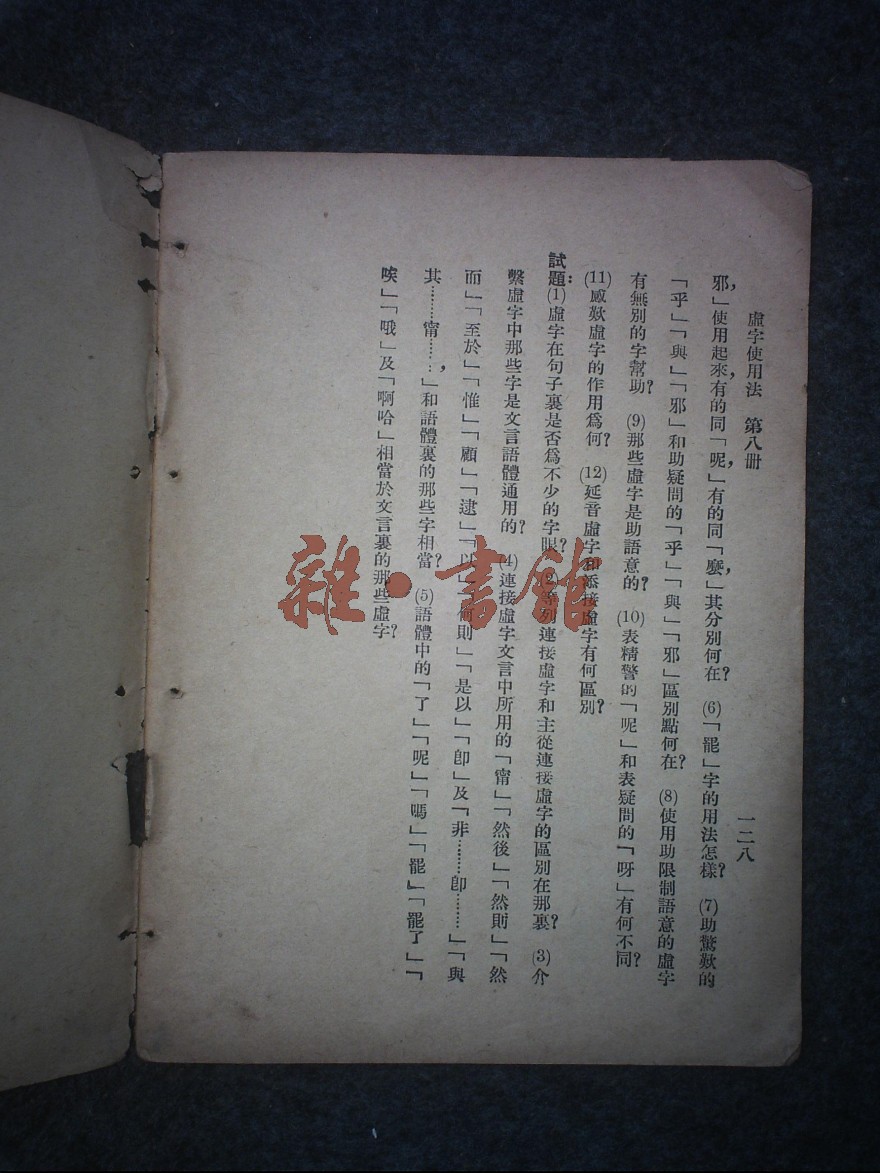 虛字使用法　第八册
一二八
邪，」使用起來，有的同「呢，」有的同「麼，」其分別何在？　(6)「罷」字的用法怎樣？　(7)助驚歎的
「乎」「與」「邪」和助疑問的「乎」「與」「邪」區別點何在？　(8)使用助限制語意的虛字
有無別的字幫助？　(9)那些虛字是助語意的？　(10)表精警的「呢」和表疑問的「呀」有何不同？
(11)感歎虛字的作用爲何？　(12)延音虛字和添接虛字有何區別？
試題：(1)虛字在句子裏是否爲不少的字眼？　(2)等列連接虛字和主從連接虛字的區別在那裏？　(3)介
繫虛字中那些字是文言語體通用的？　(4)連接虛字文言中所用的「甯」「然後」「然則」「然
而」「至於」「惟」「顧」「逮」「以」「何則」「是以」「卽」及「非………卽………」「與
其………甯………，」和語體裏的那些字相當？　(5)語體中的「了」「呢」「嗎」「罷」「罷了」「
唉」「哦」及「啊哈」相當於文言裏的那些虛字？
雜·書館